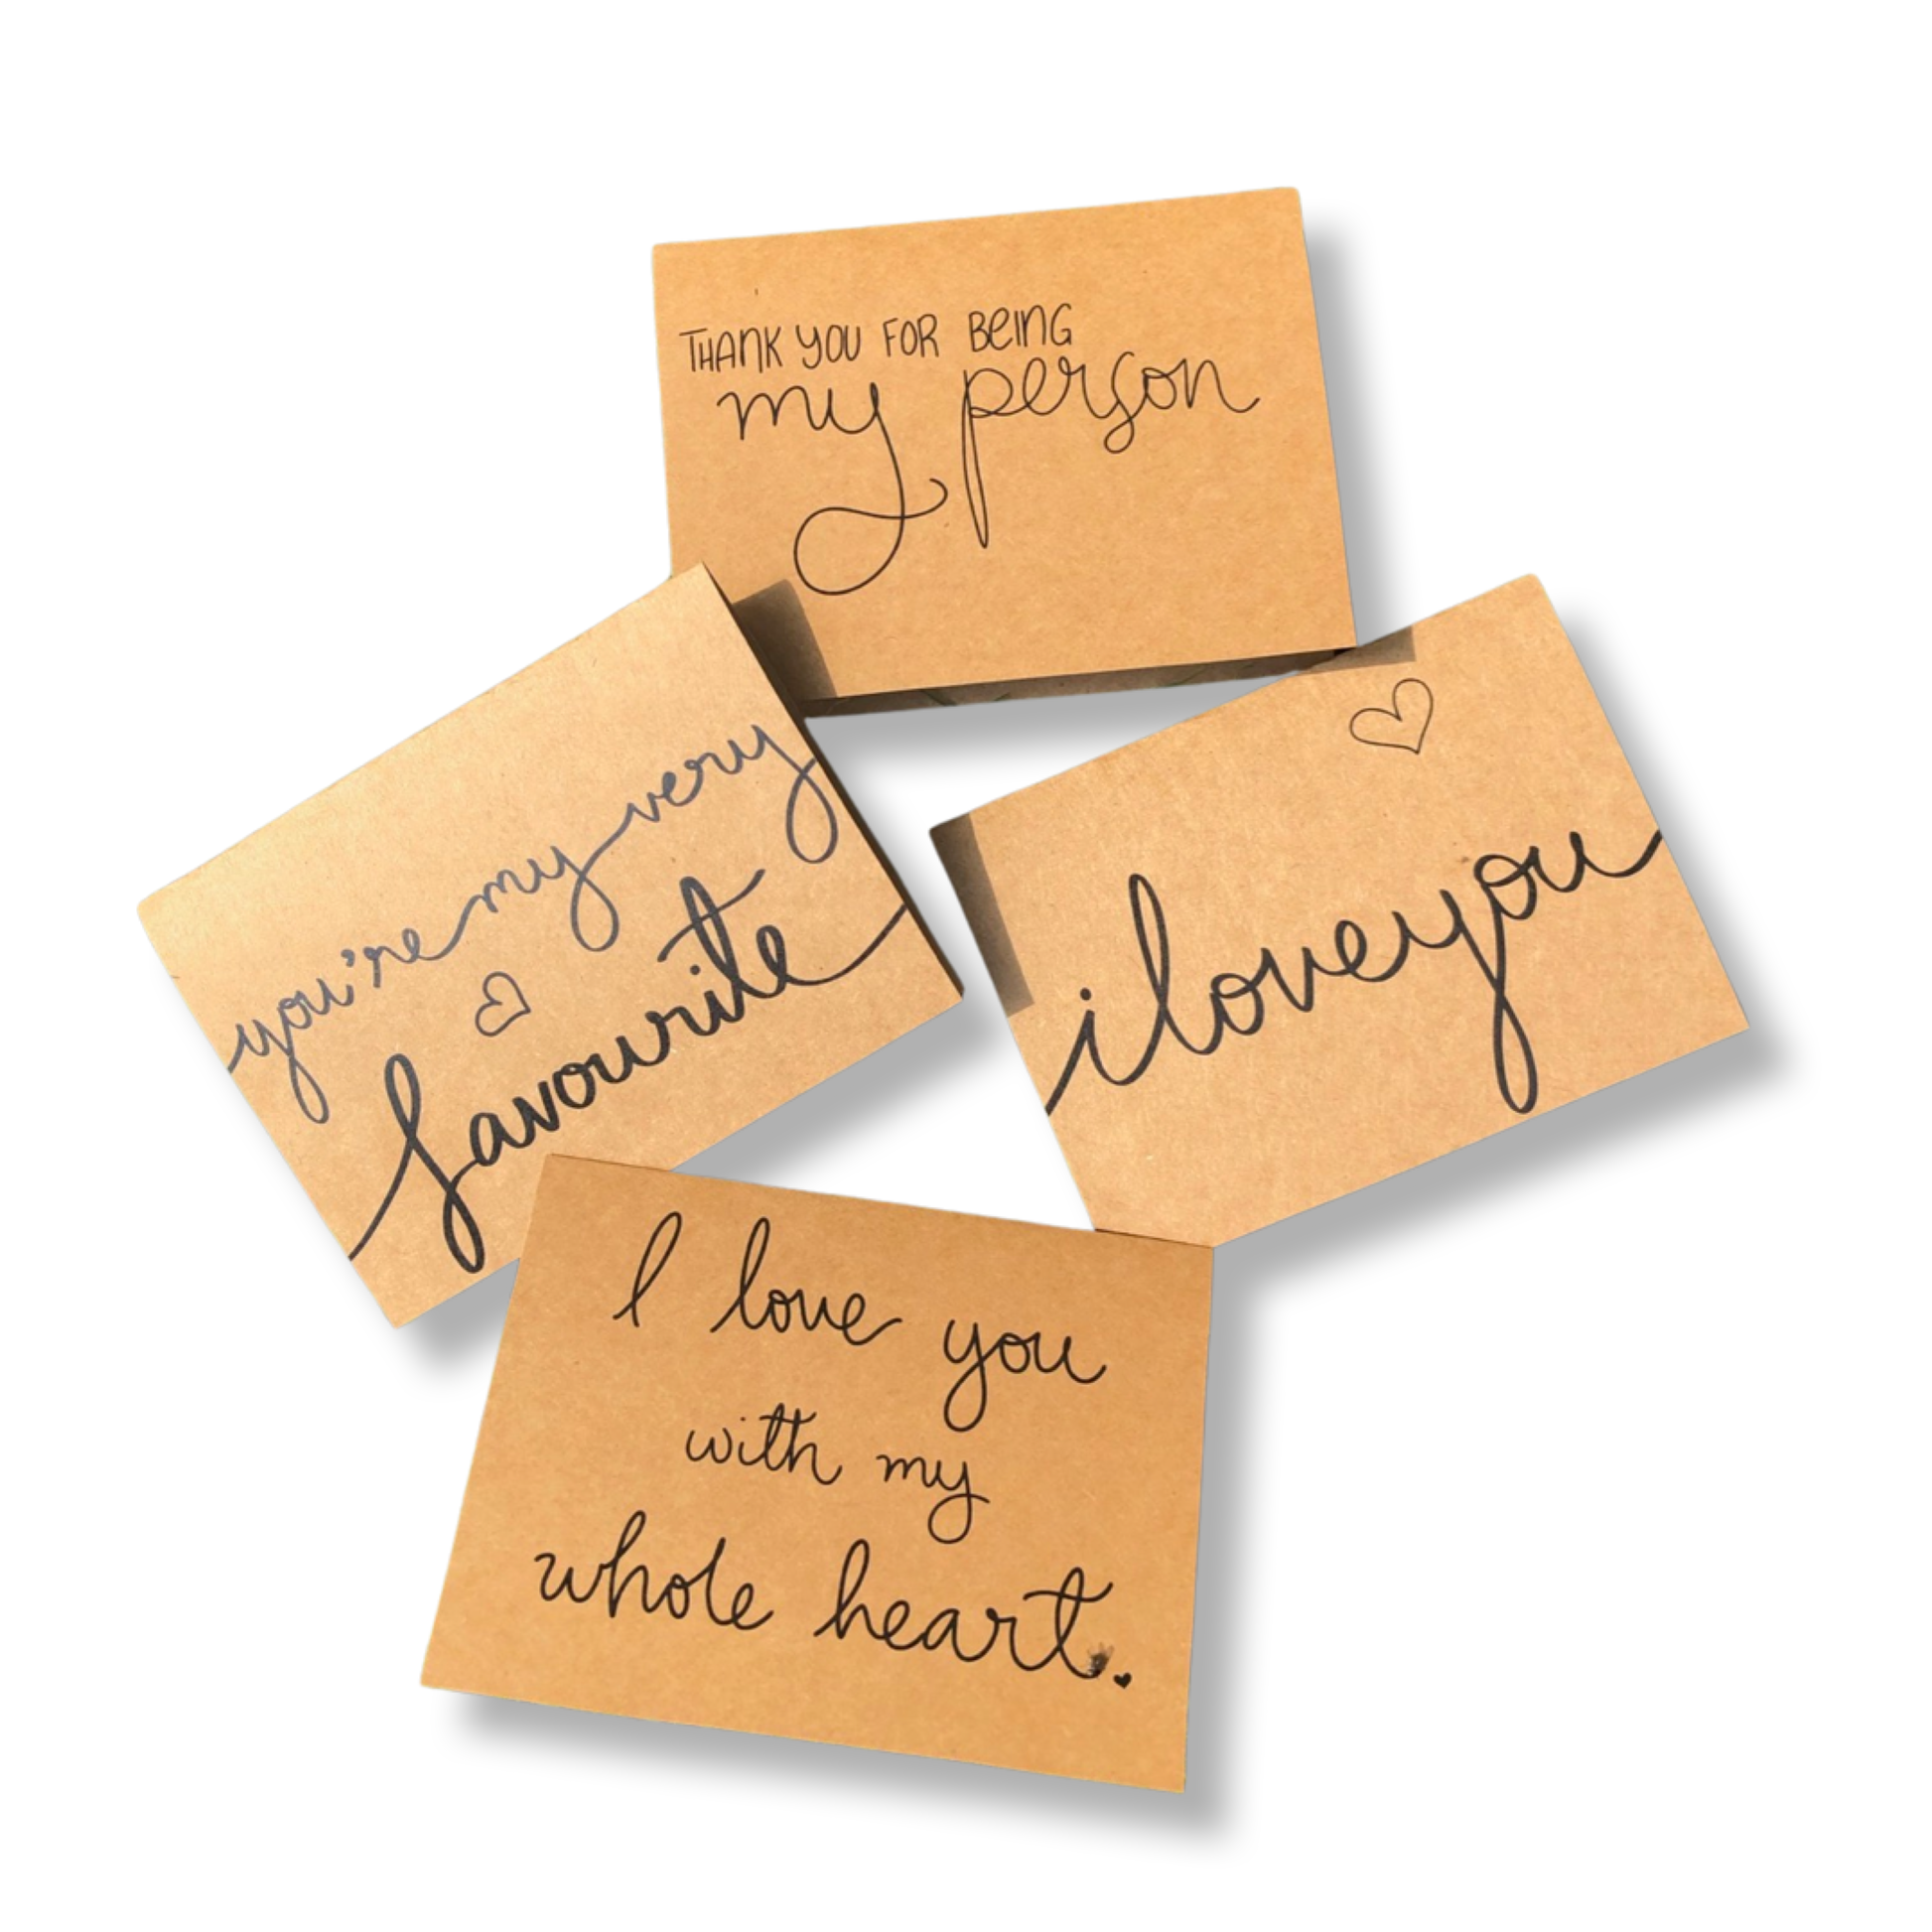 THANK YOU FOR BEING
my person
you're my very
favourite
i love you
I love you
with my
whole heart.